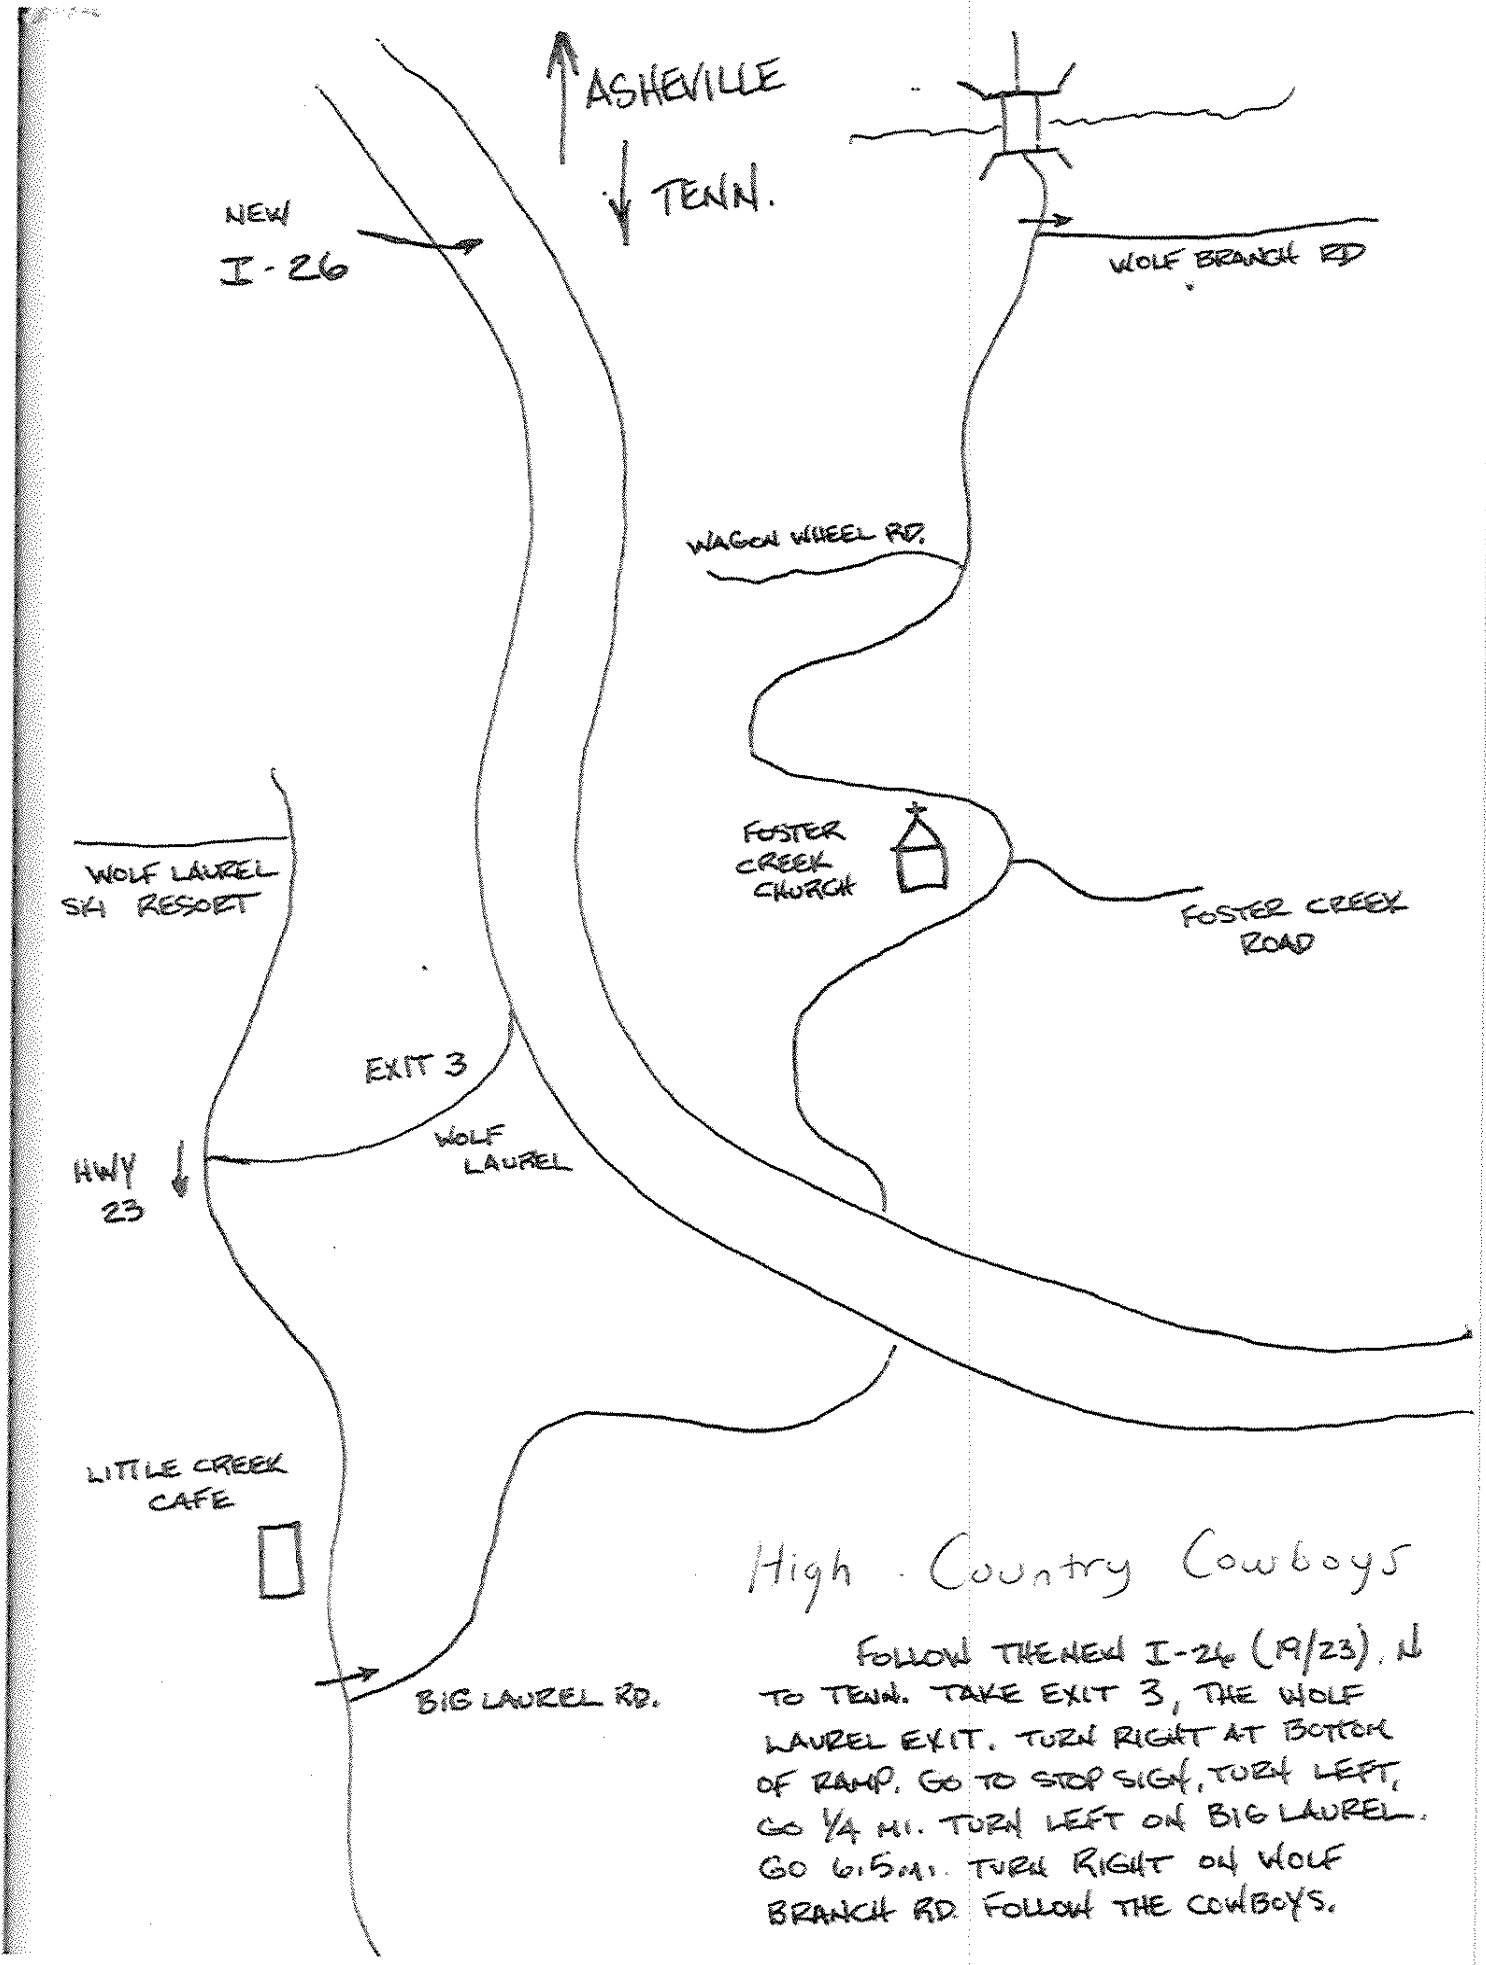 ASHEVILLE
TENN.
NEW
I-26
WOLF BRANCH RD
WAGON WHEEL RD.
FOSTER
CREEK
CHURCH
FOSTER CREEK
ROAD
WOLF LAUREL
SKI RESORT
EXIT 3
WOLF
LAUREL
HWY
23
LITTLE CREEK
CAFE
BIG LAUREL RD.
High Country Cowboys
FOLLOW THE NEW I-26 (19/23). N
TO TENN. TAKE EXIT 3, THE WOLF
LAUREL EXIT. TURN RIGHT AT BOTTOM
OF RAMP. GO TO STOP SIGN, TURN LEFT,
GO 1/4 MI. TURN LEFT ON BIG LAUREL.
GO 6.5 MI. TURN RIGHT ON WOLF
BRANCH RD. FOLLOW THE COWBOYS.